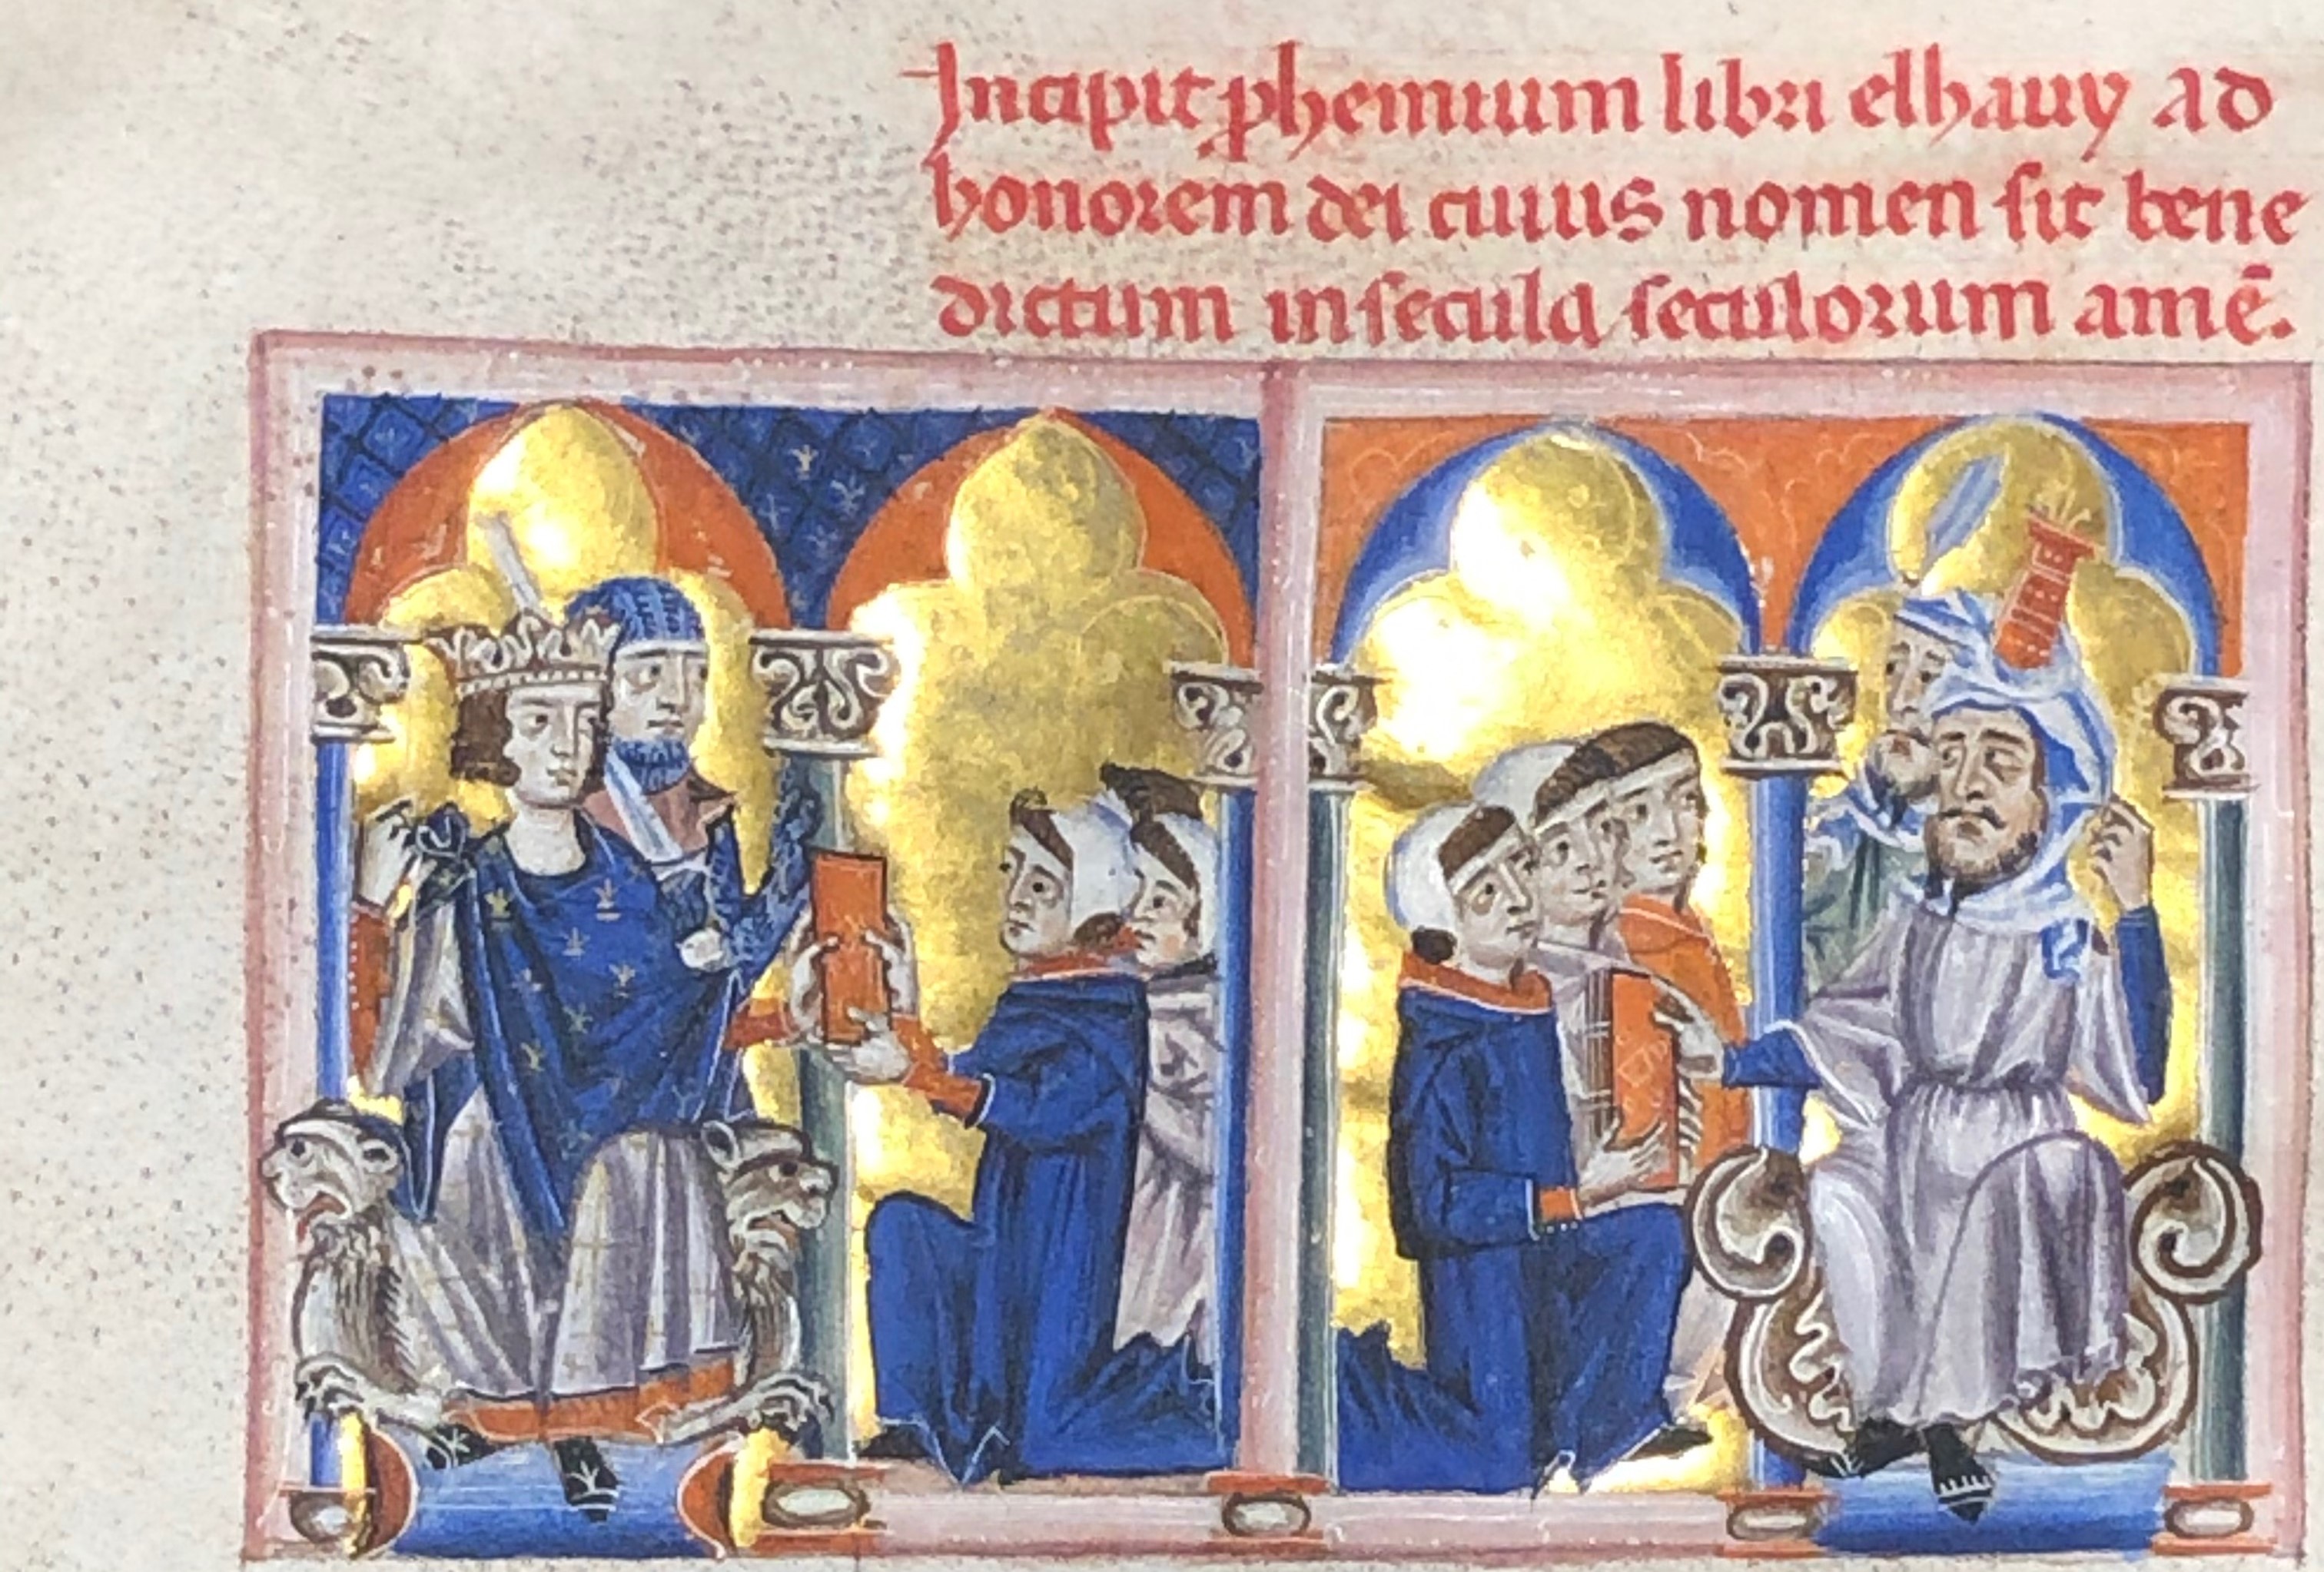 Incipit ꝓhemium libri elhauy ad
honorem dei cuius nomen sit bene
dictum in secula seculorum amē.